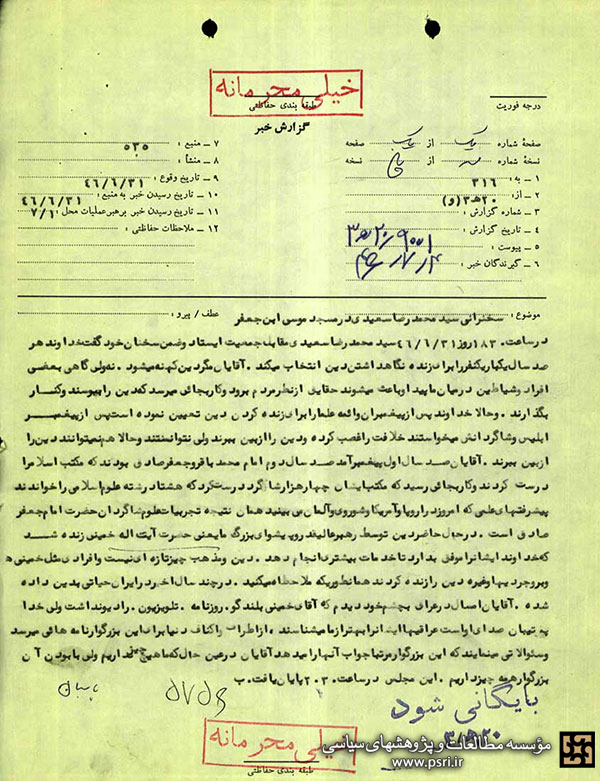 خیلی محرمانه
طبقه بندی حفاظتی
درجه فوریت
گزارش خبر
صفحهٔ شماره یک از یک صفحه
نسخهٔ شماره از نسخه
۱ ـ به : ۳۱۶
۲ ـ از: ۲۰ هـ ۳ (و)
۳ ـ شماره گزارش :
۴ ـ تاریخ گزارش :
۵ ـ پیوست :
۶ ـ گیرندگان خبر :
۷ ـ منبع : ۵۳۵
۸ ـ منشأ :
۹ ـ تاریخ وقوع : ۴۶/۶/۳۱
۱۰ ـ تاریخ رسیدن خبر به منبع : ۴۶/۶/۳۱
۱۱ ـ تاریخ رسیدن خبر برهبر عملیات محل : ۷/۱
۱۲ ـ ملاحظات حفاظتی :
موضوع : سخنرانی سید محمد رضا سعیدی در مسجد موسی ابن جعفر
عطف / پیرو :
در ساعت ۱۸۳۰ روز ۴۶/۶/۳۱ سید محمد رضا سعیدی مقابل جمعیت ایستاد و ضمن سخنان خود گفت خداوند هر
صد سال یکبار یکنفر را برای زنده نگاهداشتن دین انتخاب میکند . آقایان مگر دین کهنه میشود . نه ولی گاهی بعضی
افراد و شیاطین در میان ما پیدا و باعث میشوند حقایق از نظر مردم برود و کار بجائی میرسد که دین را ببوسند و کنار
بگذارند . و حالا خداوند پس از پیغمبران و ائمه علما را برای زنده کردن دین تعیین نموده است پس از پیغمبر
ابلیس و شاگردانش میخواستند خلافت را غصب کرده و دین را از بین ببرند ولی نتوانستند و حالا هم نمیتوانند دین را
از بین ببرند . آقایان صد سال اول پیغمبر آمد صد سال دوم امام محمد باقر و جعفر صادق بودند که مکتب اسلام را
درست کردند و کار بجائی رسید که مکتب ایشان چهار هزار شاگرد درست کرد که هشتاد رشته علوم اسلامی را خواندند
پیشرفتهای علمی که امروز در اروپا و آمریکا و شوروی و آلمان می بینید همان نتیجه تجربیات علوم شاگردان حضرت امام جعفر
صادق است . در حال حاضر دین توسط رهبر عالیقدر و پیشوای بزرگ ما یعنی حضرت آیت اله خمینی زنده شد
که خداوند ایشانرا موفق بدارد تا خدمات بیشتری انجام دهد . دین و مذهب چیز تازه ای نیست و افرادی مثل خمینی ها
و بروجردیها و غیره دین را زنده کردند همانطوریکه ملاحظه میکنید . در چند سال اخیر در ایران حیاتی بدین داده
شده . آقایان امسال در عراق بچشم خود دیدم که آقای خمینی بلندگو . روزنامه . تلویزیون . رادیو نداشت ولی خدا
پشتیبان صدای اواست عراقیها ایشانرا بهتر از ما میشناسند . از اطراف و اکناف دنیا برای این بزرگوار نامه هائی میرسد
و سئوالاتی مینمایند که این بزرگوار مرتبا جواب آنها را میدهد آقایان در عین حال که ما هیچ چیز نداریم ولی با بودن آن
بزرگوار همه چیز داریم . این مجلس در ساعت ۲۰۳۰ پایان یافت . ب
بایگانی شود
۲۰ هـ ۳
خیلی محرمانه
طبقه بندی حفاظتی
مؤسسه مطالعات و پژوهشهای سیاسی
www.psri.ir